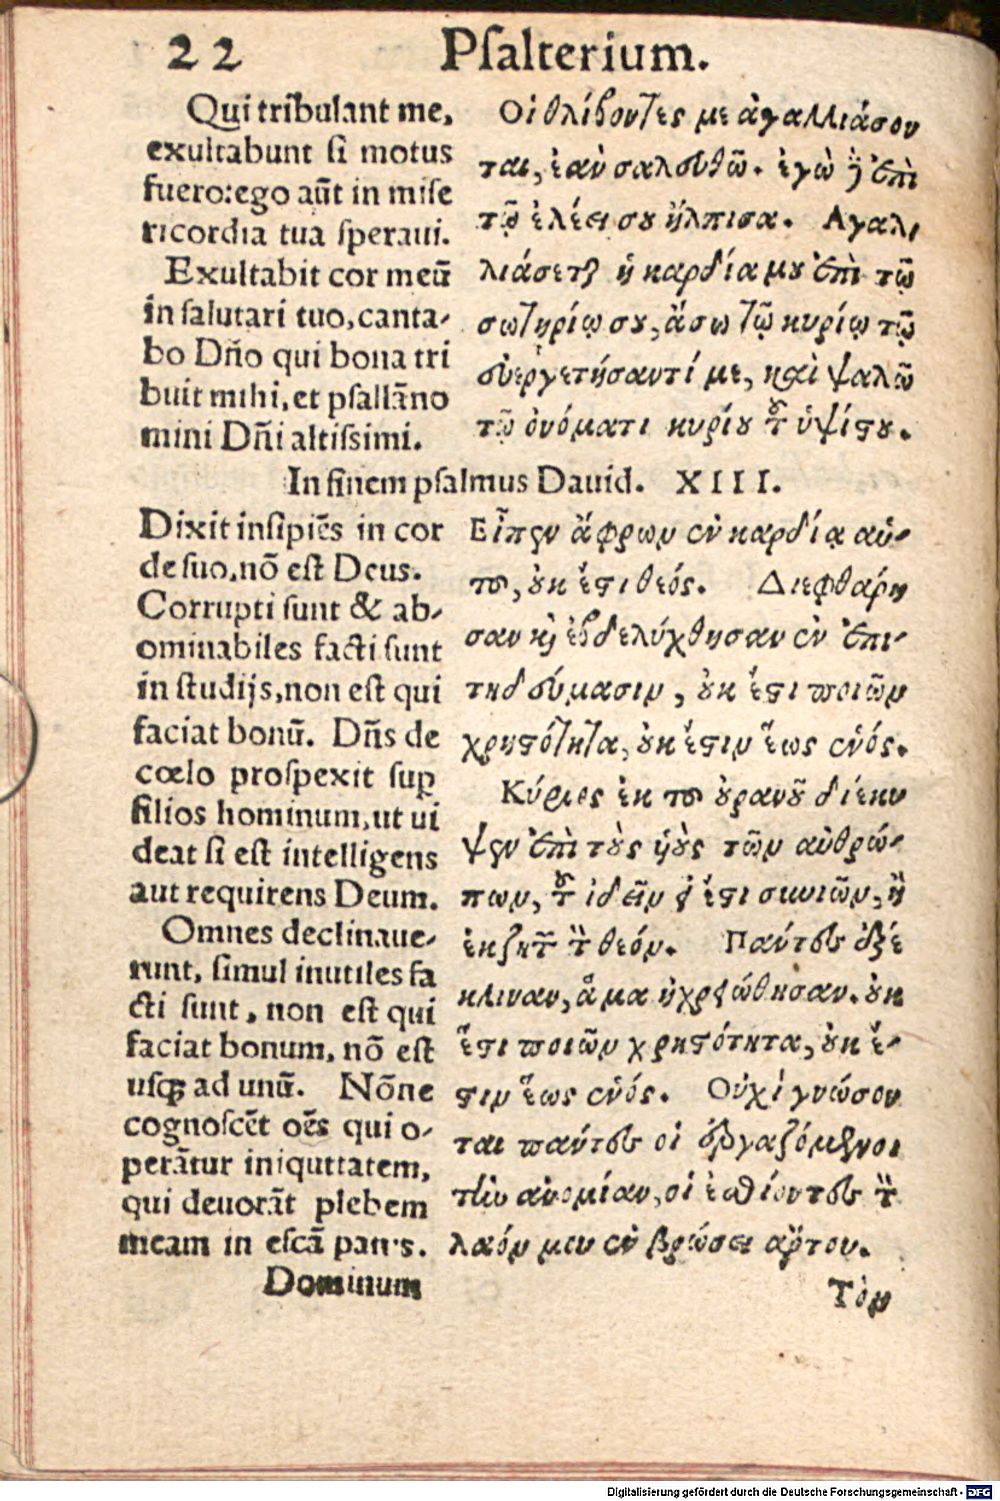 22 Pſalterium.
Qui tribulant me,
exultabunt ſi motus
fuero: ego aūt in miſe
ricordia tua ſperaui.
Exultabit cor meū
in ſalutari tuo, canta-
bo Dño qui bona tri
buit mihi, et pſallā no
mini Dñi altiſsimi.
Οἱ θλίβοντες με ἀγαλλιάσον
ται, ἐὰν σαλευθῶ. ἐγὼ ἢ ἐπὶ
τῷ ἐλέει σου ἤλπισα. Αγαλι
λιάσεται ἡ καρδία μου ἐπὶ τῷ
σωτηρίῳ σου, ἄσω τῷ κυρίῳ τῷ
εὐεργετήσαντί με, καὶ ψαλῶ
τῷ ὀνόματι κυρίου τοῦ ὑψίστου.
In finem pſalmus Dauid. XIII.
Dixit inſipiēs in cor
de ſuo, nō eſt Deus.
Corrupti ſunt & ab-
ominabiles facti ſunt
in ſtudijs, non eſt qui
faciat bonū. Dñs de
cœlo proſpexit ſuꝑ
filios hominum, ut ui
deat ſi eſt intelligens
aut requirens Deum.
Omnes declinaue-
runt, ſimul inutiles fa
cti ſunt, non eſt qui
faciat bonum, nō eſt
uſqꝫ ad unū. Nōne
cognoſcēt oēs qui o-
perātur iniquttatem,
qui deuorāt plebem
meam in eſcā panis.
Dominum
Εἶπεν ἄφρων ἐν καρδίᾳ αὐ-
του, οὐκ ἔστι θεός. Διεφθάρη
σαν καὶ ἐβδελύχθησαν ἐν ἐπι-
τηδεύμασιν, οὐκ ἔστι ποιῶν
χρηστότητα, οὐκ ἔστιν ἕως ἑνός.
Κύριος ἐκ του οὐρανοῦ διέκυ
ψεν ἐπὶ τοὺς ὑοὺς τῶν ἀνθρώ-
πων, τοῦ ἰδεῖν εἰ ἔστι συνιῶν, ἢ
ἐκζητῶν τὸν θεόν. Πάντες ἐξέ
κλιναν, ἅμα ἠχρειώθησαν. οὐκ
ἔστι ποιῶν χρηστότητα, οὐκ ἔ-
στιν ἕως ἑνός. Οὐχὶ γνώσον
ται πάντες οἱ ἐργαζόμενοι
τὴν ἀνομίαν, οἱ ἐσθίοντες τὸν
λαόν μου ἐν βρώσει ἄρτου.
Τὸν
Digitalisierung gefördert durch die Deutsche Forschungsgemeinschaft - DFG